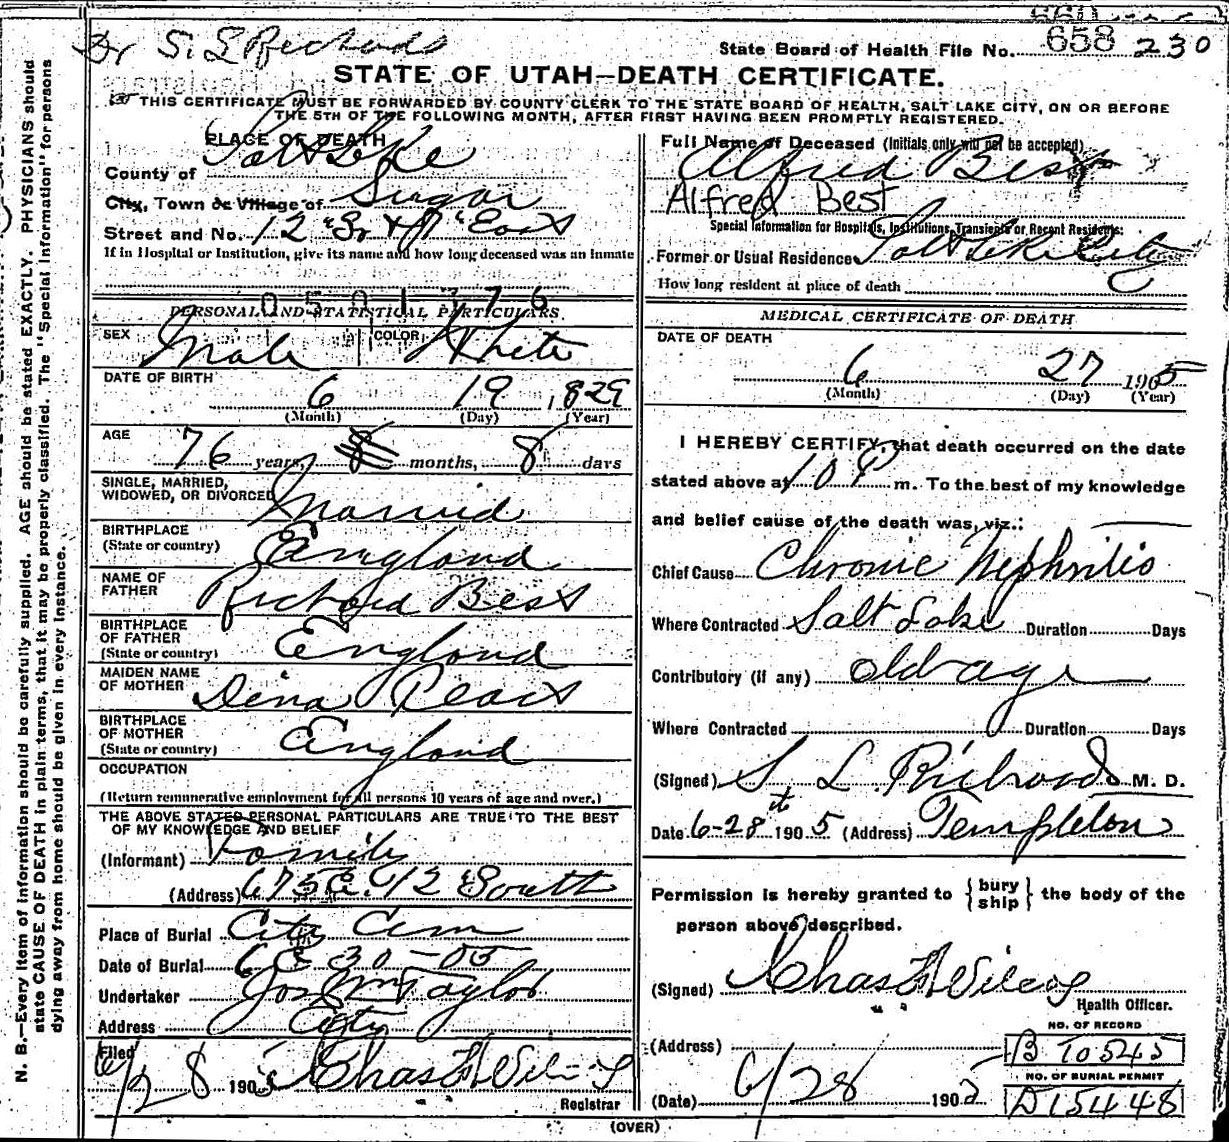 Dr S. L Richards
State Board of Health File No. 658 230
STATE OF UTAH—DEATH CERTIFICATE.
THIS CERTIFICATE MUST BE FORWARDED BY COUNTY CLERK TO THE STATE BOARD OF HEALTH, SALT LAKE CITY, ON OR BEFORE
THE 5TH OF THE FOLLOWING MONTH, AFTER FIRST HAVING BEEN PROMPTLY REGISTERED.
PLACE OF DEATH
County of Salt Lake
City, Town or Village of Sugar
Street and No. 12" So & 7" East
If in Hospital or Institution, give its name and how long deceased was an inmate
0501376
PERSONAL AND STATISTICAL PARTICULARS.
SEX Male COLOR White
DATE OF BIRTH
6 19 1829
(Month) (Day) (Year)
AGE
76 years, 8 months, 8 days
SINGLE, MARRIED,
WIDOWED, OR DIVORCED Married
BIRTHPLACE
(State or country) England
NAME OF
FATHER Richard Best
BIRTHPLACE
OF FATHER
(State or country) England
MAIDEN NAME
OF MOTHER Dina
BIRTHPLACE
OF MOTHER
(State or country) England
OCCUPATION
(Return remunerative employment for all persons 10 years of age and over.)
THE ABOVE STATED PERSONAL PARTICULARS ARE TRUE TO THE BEST
OF MY KNOWLEDGE AND BELIEF
(Informant) Family
(Address) 675 E. 12" South
Place of Burial City Cem
Date of Burial 6 30-05
Undertaker Jos Wm Taylor
Address City
Filed
6/28 1905 Chas Wilcox
Registrar
Full Name of Deceased (Initials only will not be accepted)
Alfred Best
Alfred Best
Special Information for Hospitals, Institutions, Transients or Recent Residents:
Former or Usual Residence Salt Lake City
How long resident at place of death
MEDICAL CERTIFICATE OF DEATH
DATE OF DEATH
6 27 1905
(Month) (Day) (Year)
I HEREBY CERTIFY, that death occurred on the date
stated above at 10 P m. To the best of my knowledge
and belief cause of the death was, viz.:
Chief Cause Chronic Nephritis
Where Contracted Salt Lake Duration Days
Contributory (if any) old age
Where Contracted Duration Days
(Signed) S L Richards M. D.
Date 6-28 1905 (Address) Templeton
Permission is hereby granted to {bury ship} the body of the
person above described.
(Signed) Chas Wilcox
Health Officer.
NO. OF RECORD
(Address) B 10545
NO. OF BURIAL PERMIT
(Date) 6/28 1905 D15448
(OVER)
N. B.—Every item of information should be carefully supplied. AGE should be stated EXACTLY. PHYSICIANS should
state CAUSE OF DEATH in plain terms, that it may be properly classified. The "Special Information" for persons
dying away from home should be given in every instance.